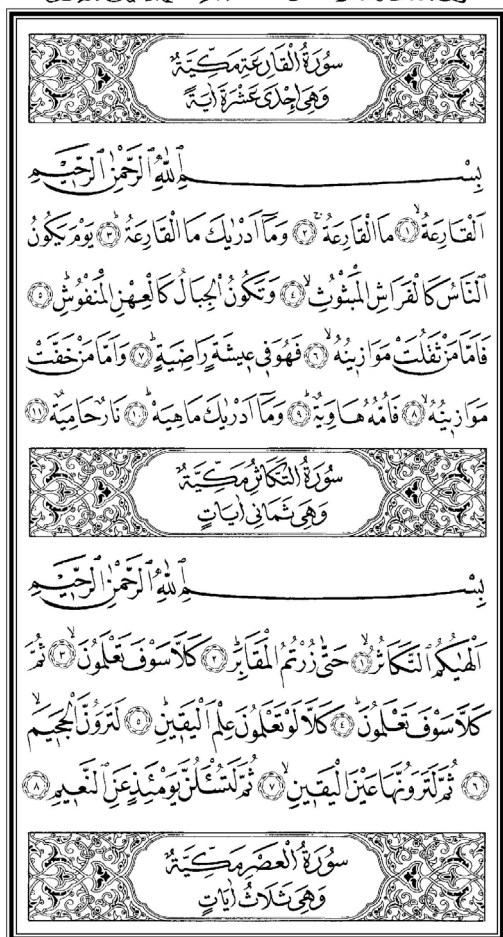 سُورَةُ الْقَارِعَةِ مَكِّيَّةٌ
وَهِيَ اِحْدٰى عَشْرَةَ اٰيَةً
بِسْمِ اللّٰهِ الرَّحْمٰنِ الرَّحٖيمِ
اَلْقَارِعَةُۙ ﴿١﴾ مَا الْقَارِعَةُۚ ﴿٢﴾ وَمَٓا اَدْرٰيكَ مَا الْقَارِعَةُؕ ﴿٣﴾ يَوْمَ يَكُونُ
النَّاسُ كَالْفَرَاشِ الْمَبْثُوثِۙ ﴿٤﴾ وَتَكُونُ الْجِبَالُ كَالْعِهْنِ الْمَنْفُوشِؕ ﴿٥﴾
فَاَمَّا مَنْ ثَقُلَتْ مَوَازٖينُهُۙ ﴿٦﴾ فَهُوَ فٖي عٖيشَةٍ رَاضِيَةٍؕ ﴿٧﴾ وَاَمَّا مَنْ خَفَّتْ
مَوَازٖينُهُۙ ﴿٨﴾ فَاُمُّهُ هَاوِيَةٌؕ ﴿٩﴾ وَمَٓا اَدْرٰيكَ مَا هِيَهْؕ ﴿١٠﴾ نَارٌ حَامِيَةٌ ﴿١١﴾
سُورَةُ التَّكَاثُرِ مَكِّيَّةٌ
وَهِيَ ثَمَانِي اٰيَاتٍ
بِسْمِ اللّٰهِ الرَّحْمٰنِ الرَّحٖيمِ
اَلْهٰيكُمُ التَّكَاثُرُۙ ﴿١﴾ حَتّٰى زُرْتُمُ الْمَقَابِرَؕ ﴿٢﴾ كَلَّا سَوْفَ تَعْلَمُونَۙ ﴿٣﴾ ثُمَّ
كَلَّا سَوْفَ تَعْلَمُونَؕ ﴿٤﴾ كَلَّا لَوْ تَعْلَمُونَ عِلْمَ الْيَقٖينِؕ ﴿٥﴾ لَتَرَوُنَّ الْجَحٖيمَۙ
﴿٦﴾ ثُمَّ لَتَرَوُنَّهَا عَيْنَ الْيَقٖينِۙ ﴿٧﴾ ثُمَّ لَتُسْـَٔلُنَّ يَوْمَئِذٍ عَنِ النَّعٖيمِ ﴿٨﴾
سُورَةُ الْعَصْرِ مَكِّيَّةٌ
وَهِيَ ثَلَاثُ اٰيَاتٍ